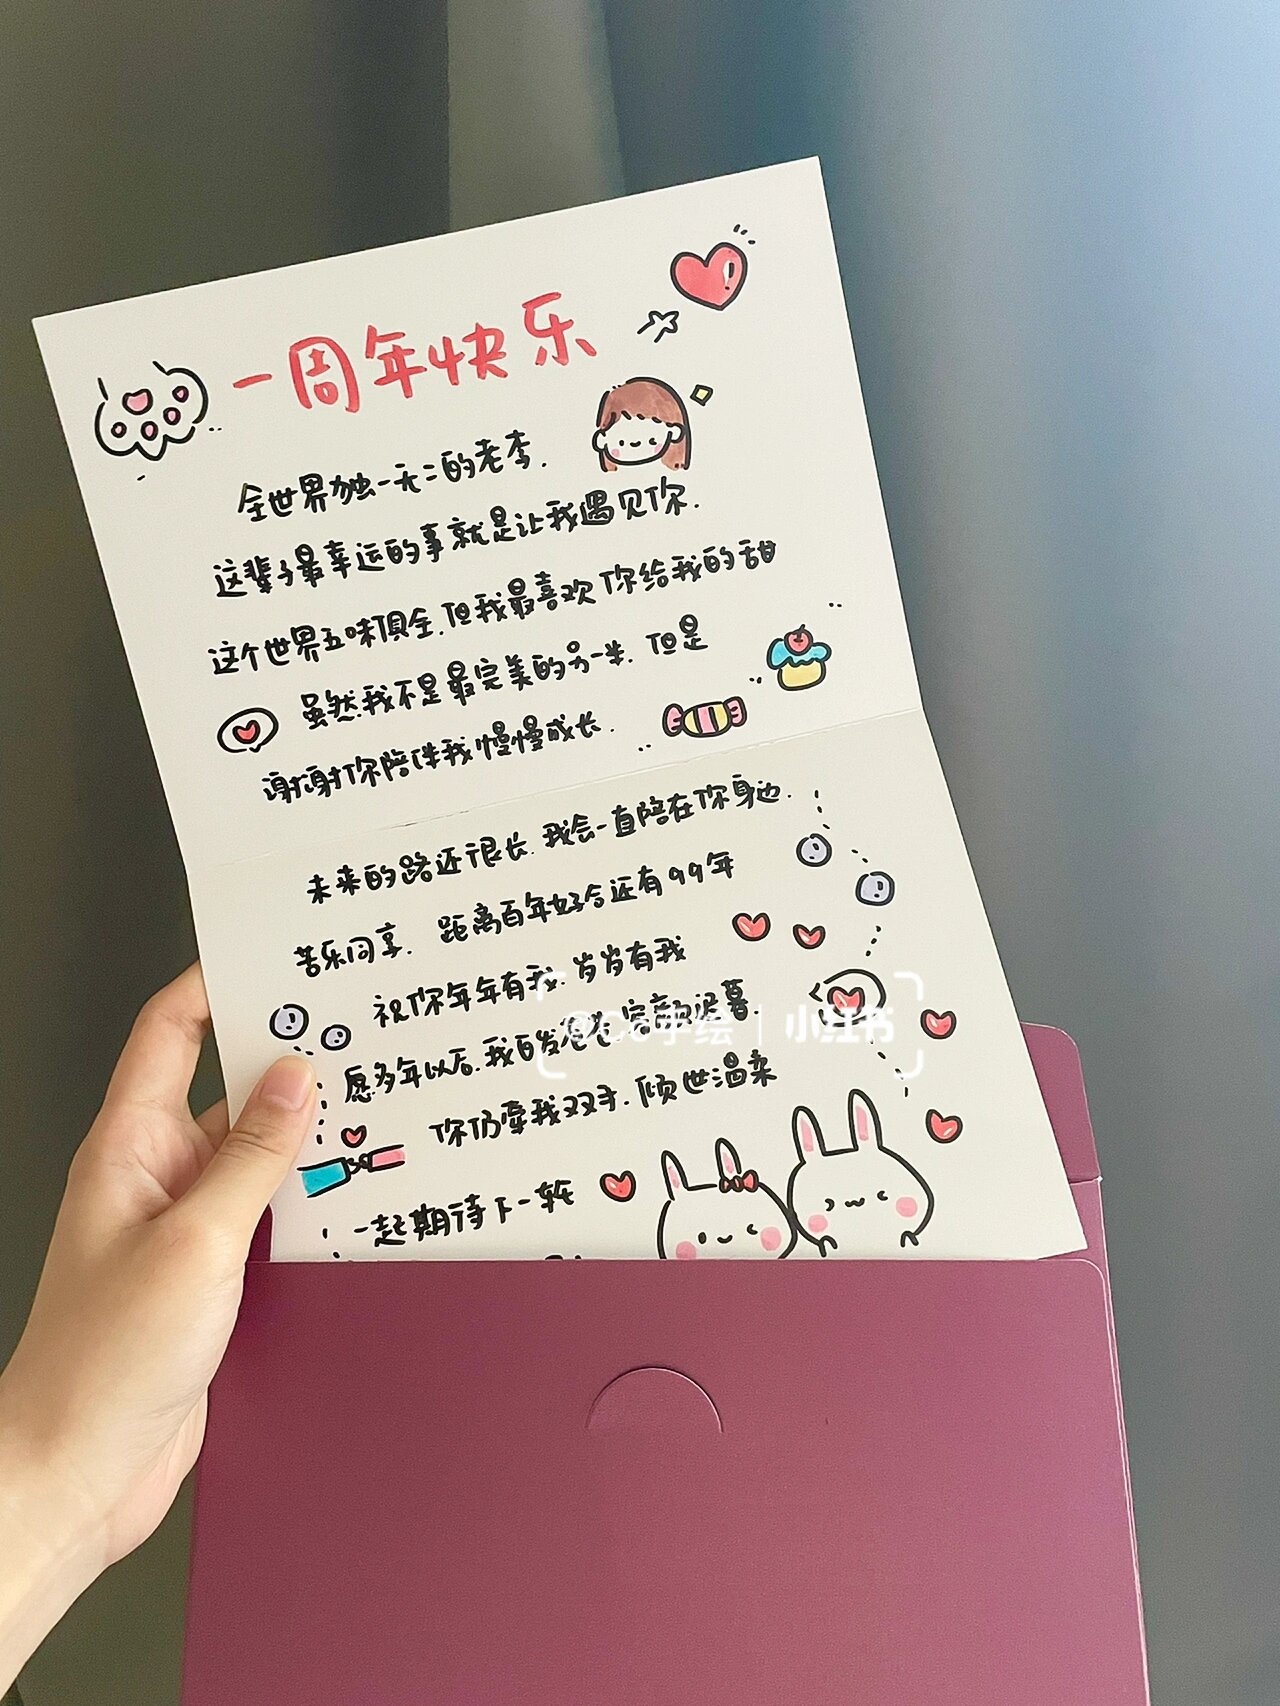 一周年快乐
全世界独一无二的老李.
这辈子最幸运的事就是让我遇见你.
这个世界五味俱全,但我最喜欢你给我的甜
虽然我不是最完美的另一半.但是
谢谢你陪伴我慢慢成长.
未来的路还很长.我会一直陪在你身边.
苦乐同享. 距离百年好合还有99年
祝你年年有我.岁岁有我
愿多年以后.我白发苍苍 容颜迟暮.
@Co手绘 | 小红书
你仍牵我双手.倾世温柔
一起期待下一年